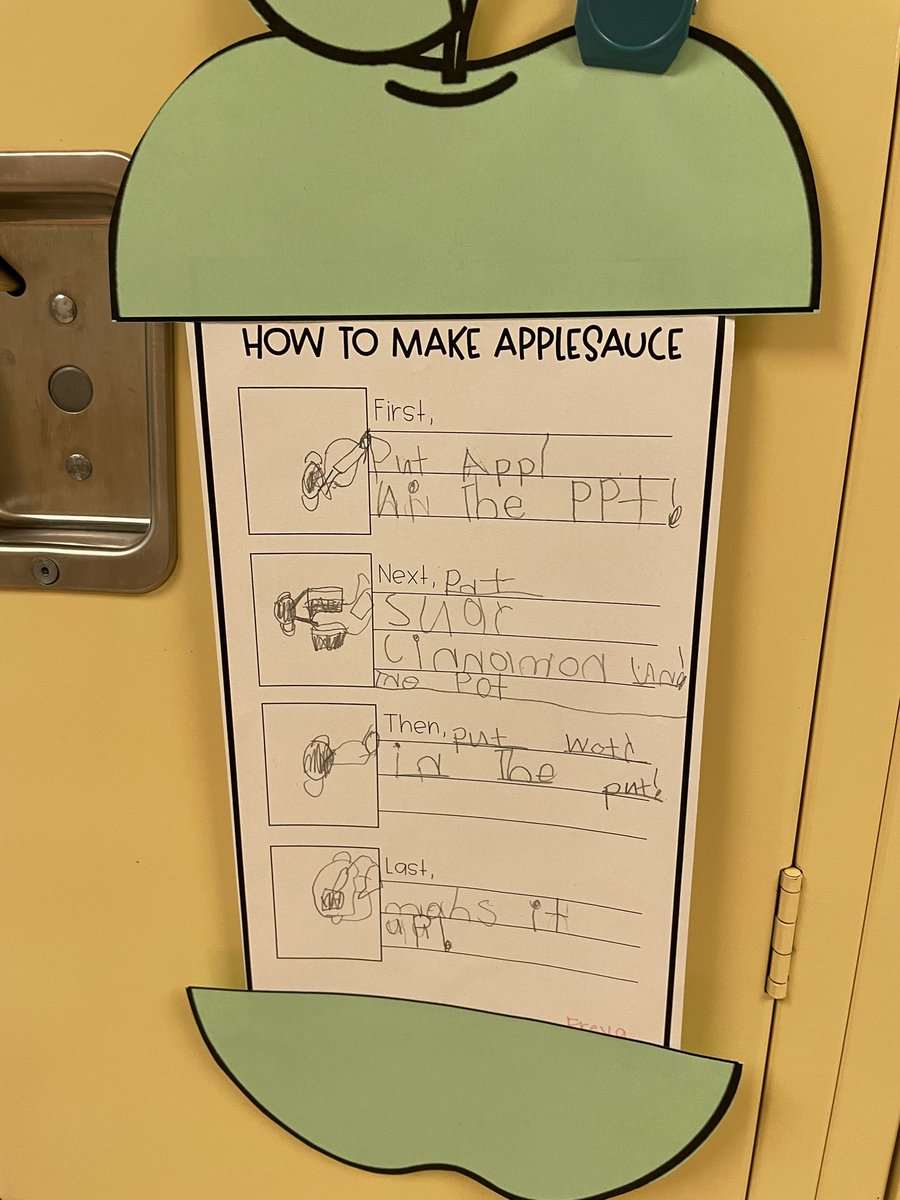 HOW TO MAKE APPLESAUCE
First,
Put Appl
in The PPt!
Next, Pat
Sugr
Cinnamon
the Pot
Then, put watr
in The put!
Last,
mahs it
upl.
Freya